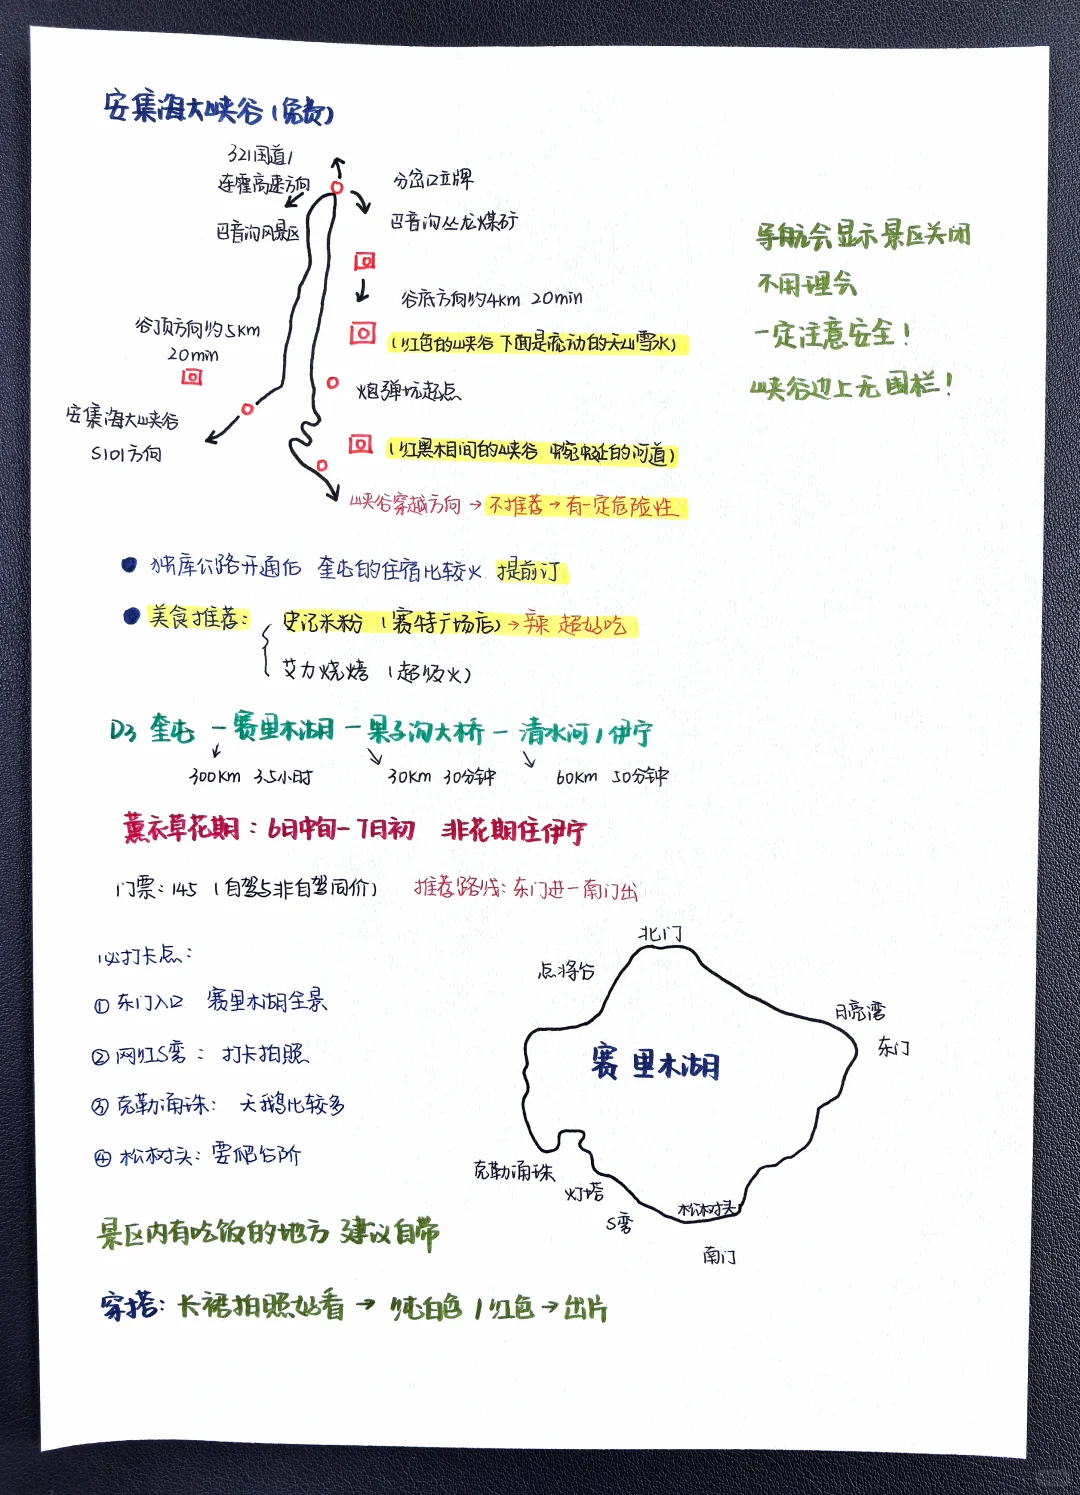 安集海大峡谷(免费)
321国道/
连霍高速方向
分岔口立牌
巴音沟风景区
巴音沟丛龙煤矿
导航会显示景区关闭
不用理会
一定注意安全!
峡谷边上无围栏!
谷底方向约4km 20min
谷顶方向约5km
20min
(红色的峡谷 下面是流动的天山雪水)
炮弹坑起点
安集海大峡谷
S101方向
(红黑相间的峡谷 蜿蜒的河道)
峡谷穿越方向→不推荐→有一定危险性
独库公路开通后 奎屯的住宿比较火 提前订
美食推荐:
史记米粉 (赛特广场店)→辣 超好吃
艾力烧烤 (超级火)
D3 奎屯-赛里木湖-果子沟大桥-清水河/伊宁
300km 3.5小时
30km 30分钟
60km 50分钟
薰衣草花期:6月中旬-7月初 非花期住伊宁
门票:145 (自驾与非自驾同价) 推荐路线:东门进-南门出
必打卡点:
① 东门入口 赛里木湖全景
② 网红S弯: 打卡拍照
③ 克勒涌珠: 天鹅比较多
④ 松树头:要爬台阶
北门
点将台
月亮湾
东门
赛里木湖
克勒涌珠
灯塔
S弯
松树头
南门
景区内有吃饭的地方 建议自带
穿搭:长裙拍照好看→ 纯白色/红色→出片